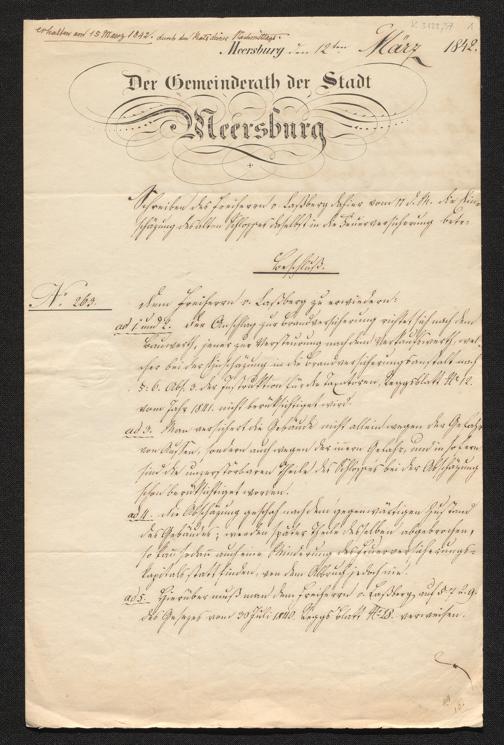 erhalten am 15 Maerz 1842. durch den Rathsdiener Nachmittags.
K 3133,57 1
Meersburg den 12ten März 1842.
Der Gemeinderath der Stadt
Meersburg
Schreiben des Freiherrn v. Laßberg dahier vom 11 d. M. die Ein-
schäzung des alten Schlosses daselbst in die Feuerversicherung betr.
Beschluß.
N. 263.
Dem Freiherrn v. Laßberg zu erwiedern:
ad 1 und 2. Der Anschlag zur Brandversicherung richtet sich nach dem
Bauwerth, jener zur Versteurung nach dem Verkaufswerth, wel-
cher bei der Einschäzung in die Brandversicherungsanstalt nach
§. 6. Abs. 3. der Instruktion für die Taxatoren, Reggsblatt No 12.
vom Jahr 1841. nicht berüksichtiget wird.
ad 3. Man versichert die Gebäude nicht allein wegen der Gefahr
von Aussen, sondern auch wegen der innern Gefahr, und in so fern
sind die unzerstörbaren Theile des Schlosses bei der Abschäzung
schon berüksichtiget worden.
ad 4. Die Abschäzung geschah nach dem gegenwärtigen Zustand
des Gebäudes; werden später Theile desselben abgebrochen,
so kann sodann auch eine Minderung des Feuerversicherungs-
kapitals statt finden, vor dem Abbruch jedoch nie.
ad 5. Hierüber muß man den Freiherrn v. Laßberg auf §. 7. u. 9.
des Gesezes vom 30 Juli 1840. Reggs Blatt No 28. verweisen.